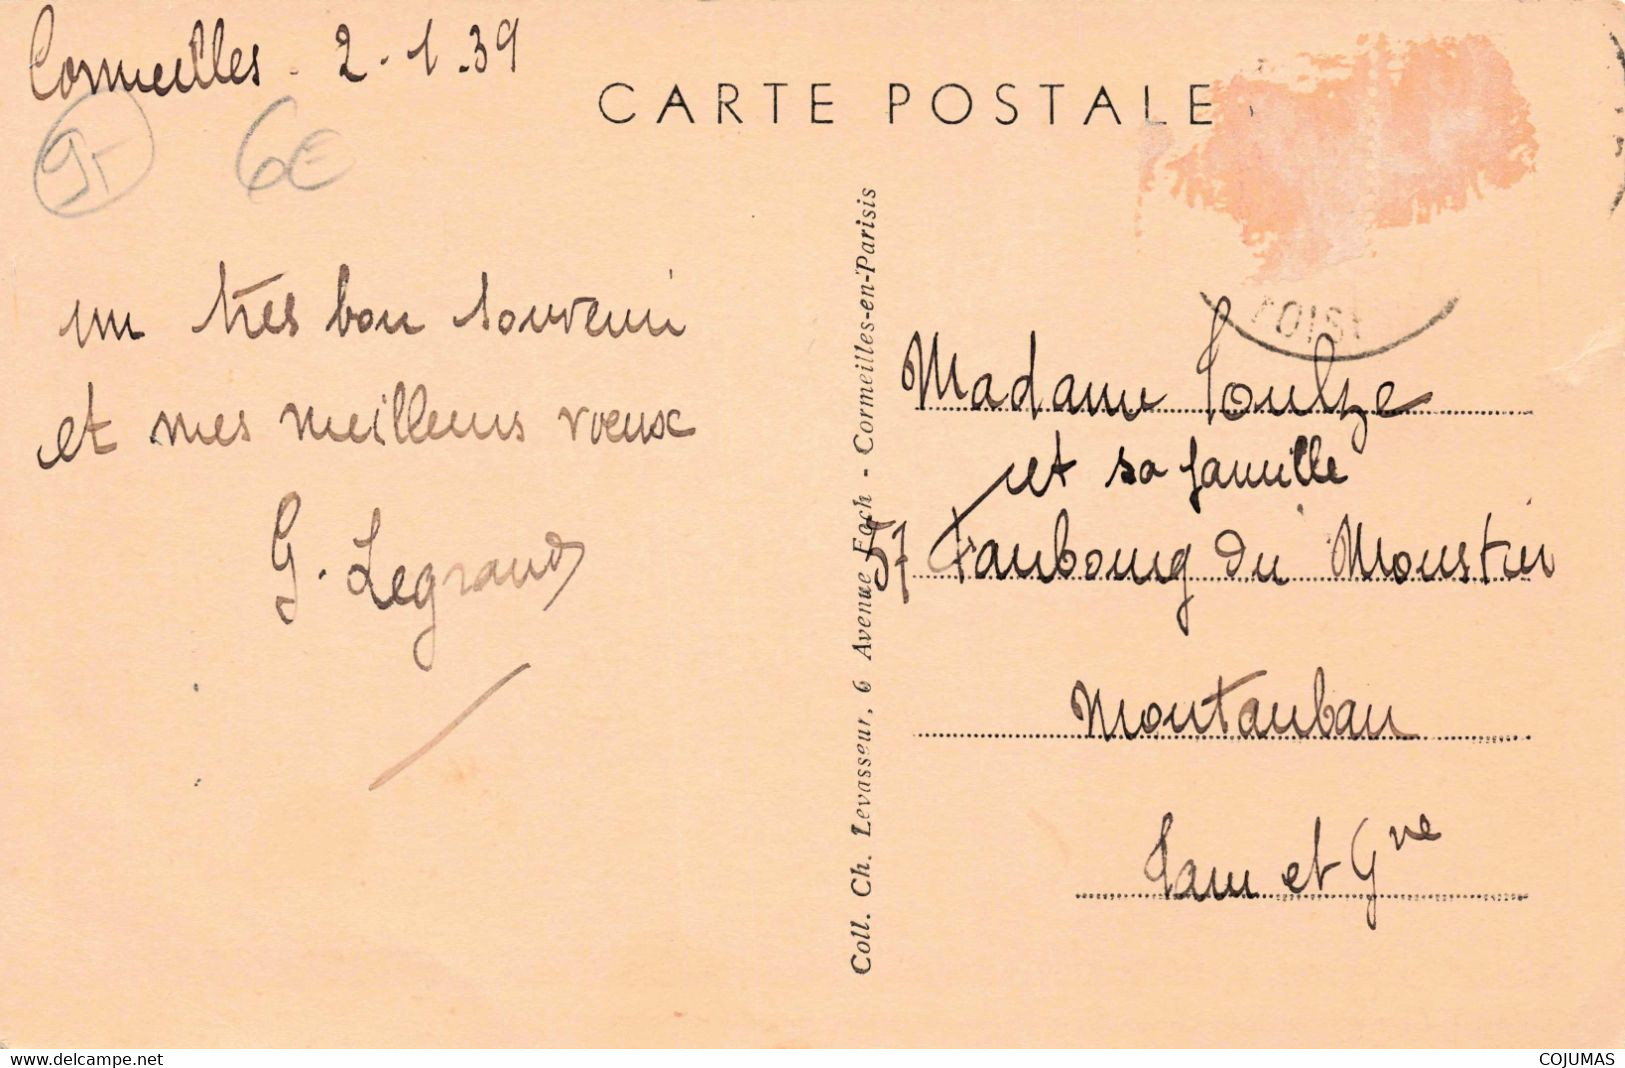 Cormeilles - 2-1-39
CARTE POSTALE
95
6€
un très bon souvenir
et mes meilleurs voeux
G. Legrand
Coll. Ch. Levasseur, 6 Avenue Foch - Cormeilles-en-Parisis
Madame Soulze
et sa famille
57 Faubourg du Moustier
Montauban
Tarn et Gne
www.delcampe.net
COJUMAS